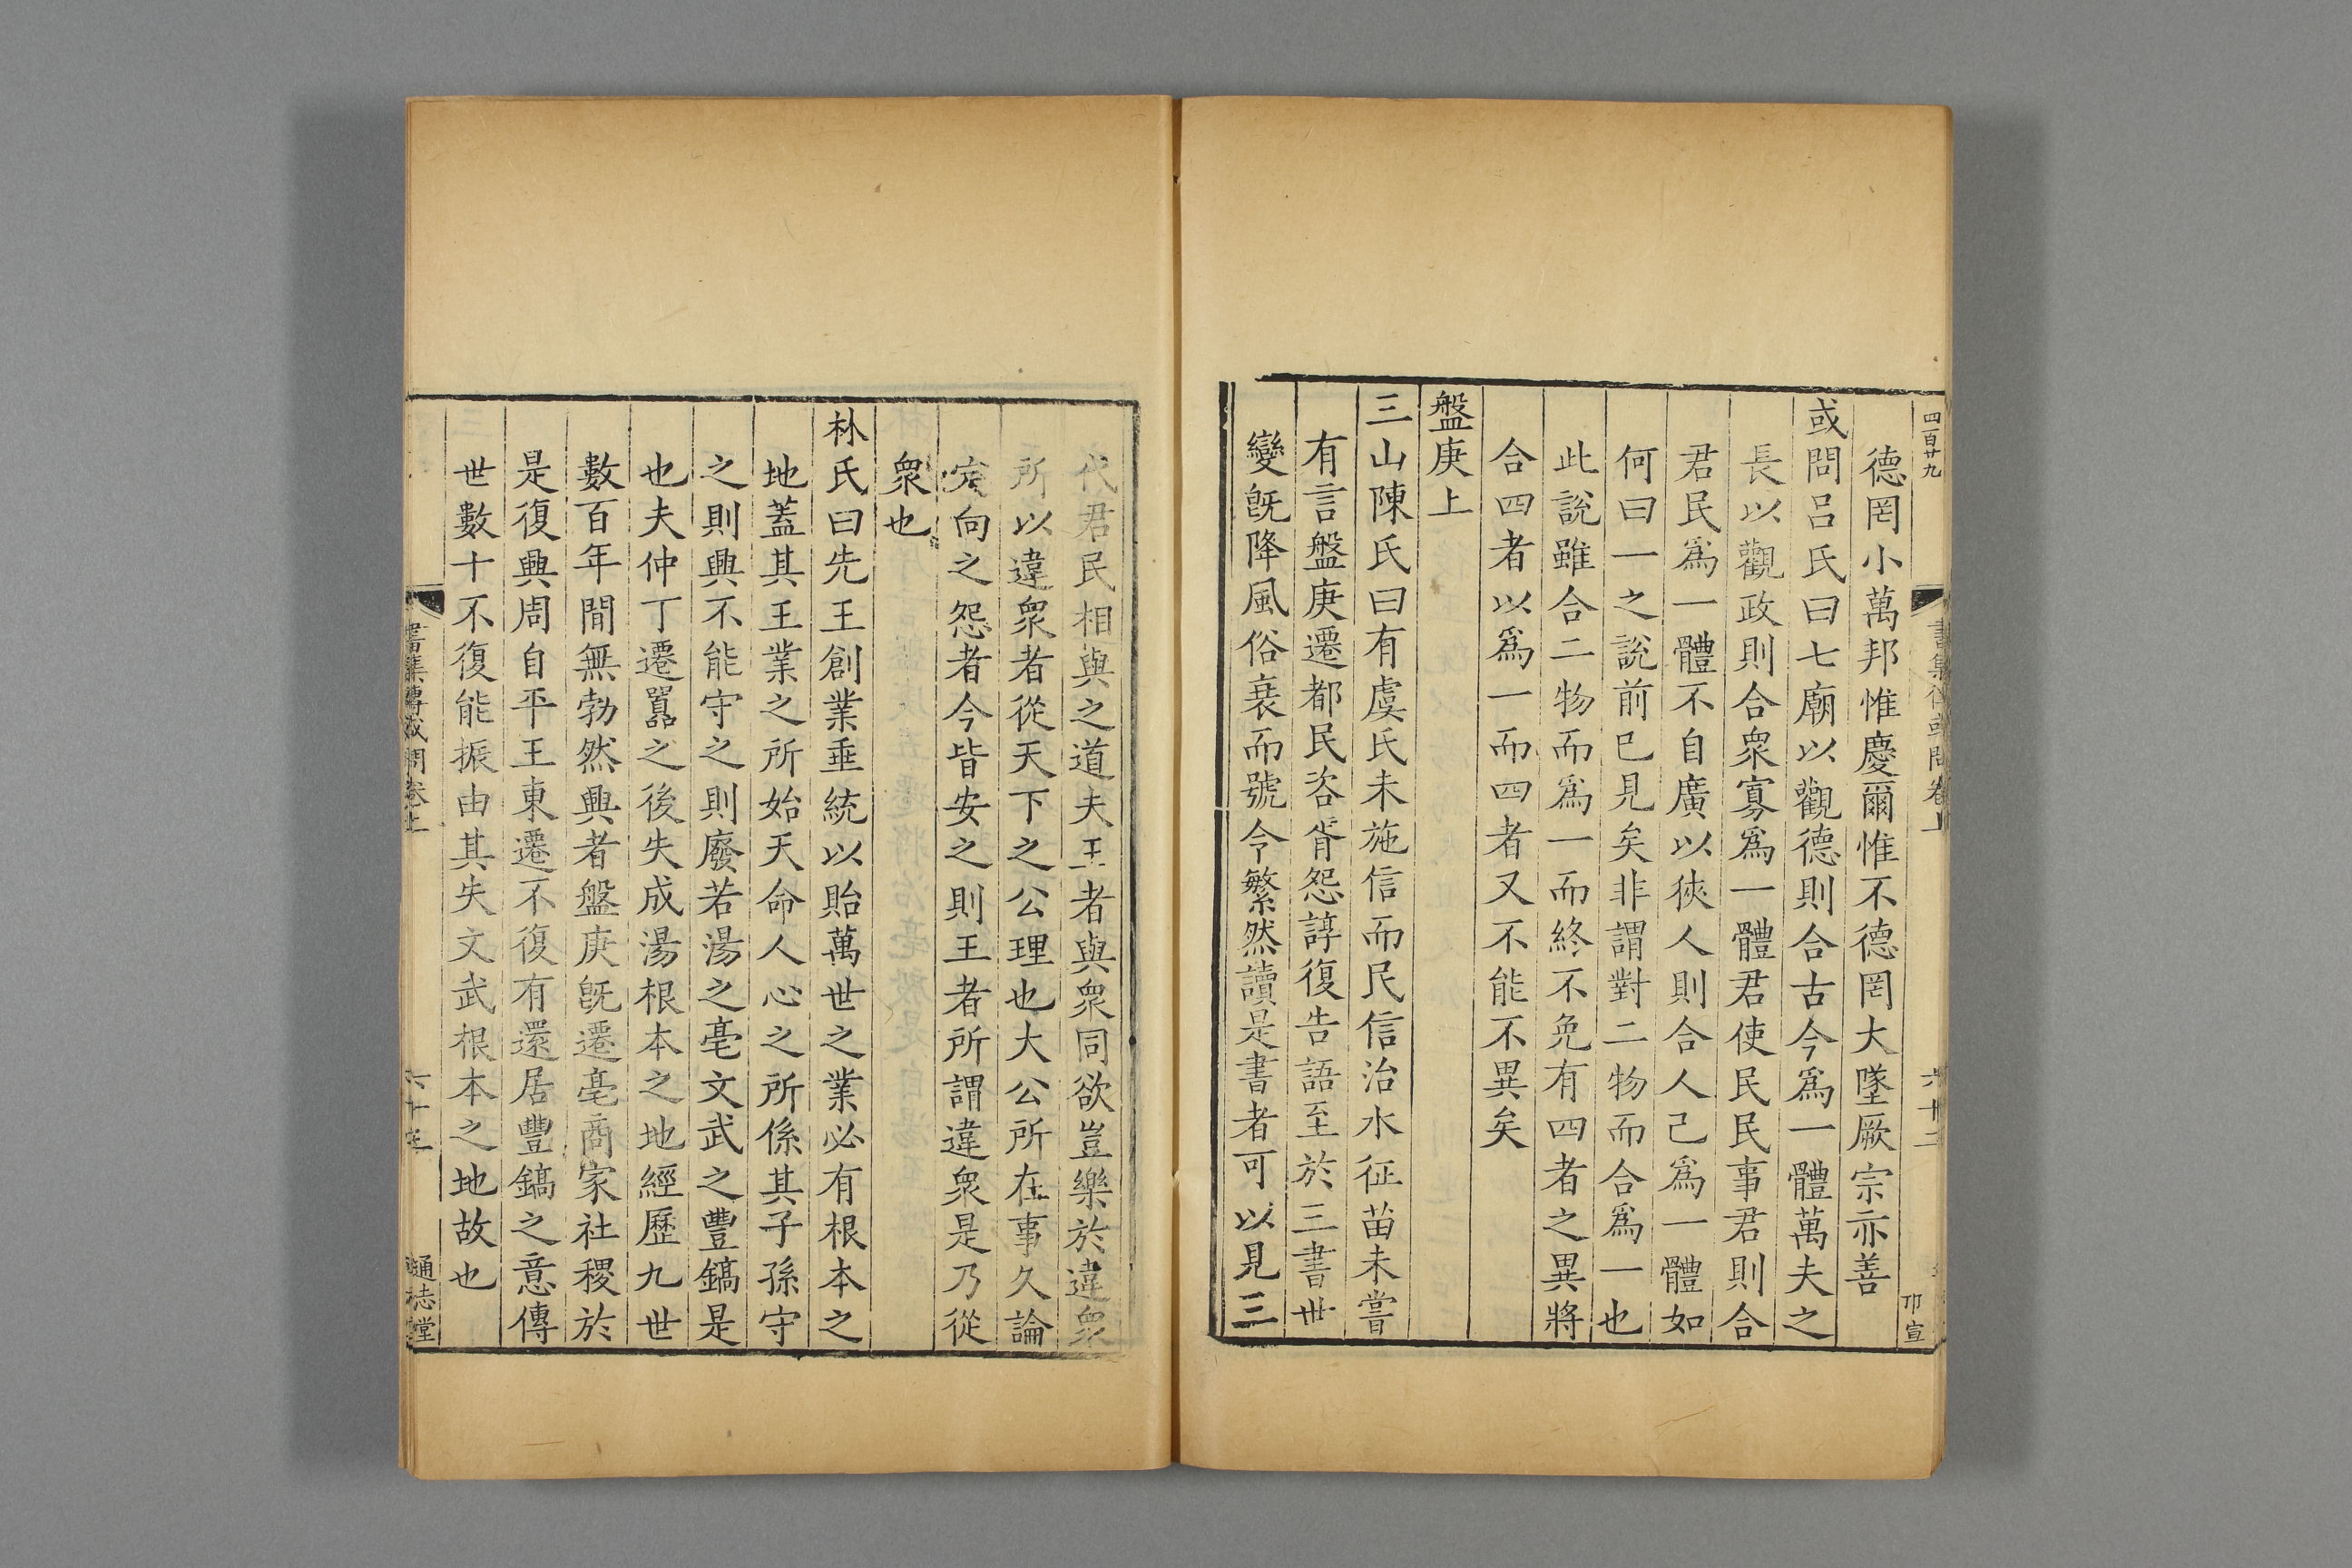 四百廿九
書集傳或問卷上
六十二
卭宣
德罔小萬邦惟慶爾惟不德罔大墜厥宗亦善
或問呂氏曰七廟以觀德則合古今爲一體萬夫之
長以觀政則合衆寡爲一體君使民民事君則合
君民爲一體不自廣以狹人則合人己爲一體如
何曰一之說前已見矣非謂對二物而合爲一也
此說雖合二物而爲一而終不免有四者之異將
合四者以爲一而四者又不能不異矣
盤庚上
三山陳氏曰有虞氏未施信而民信治水征苗未嘗
有言盤庚遷都民咨胥怨諄復告語至於三書世
變旣降風俗衰而號令繁然讀是書者可以見三
代君民相與之道夫王者與衆同欲豈樂於違衆
所以違衆者從天下之公理也大公所在事久論
定向之怨者今皆安之則王者所謂違衆是乃從
衆也
林氏曰先王創業垂統以貽萬世之業必有根本之
地蓋其王業之所始天命人心之所係其子孫守
之則興不能守之則廢若湯之亳文武之豐鎬是
也夫仲丁遷囂之後失成湯根本之地經歷九世
數百年間無勃然興者盤庚旣遷亳商家社稷於
是復興周自平王東遷不復有還居豐鎬之意傳
世數十不復能振由其失文武根本之地故也
書集傳或問卷上
六十
通志堂